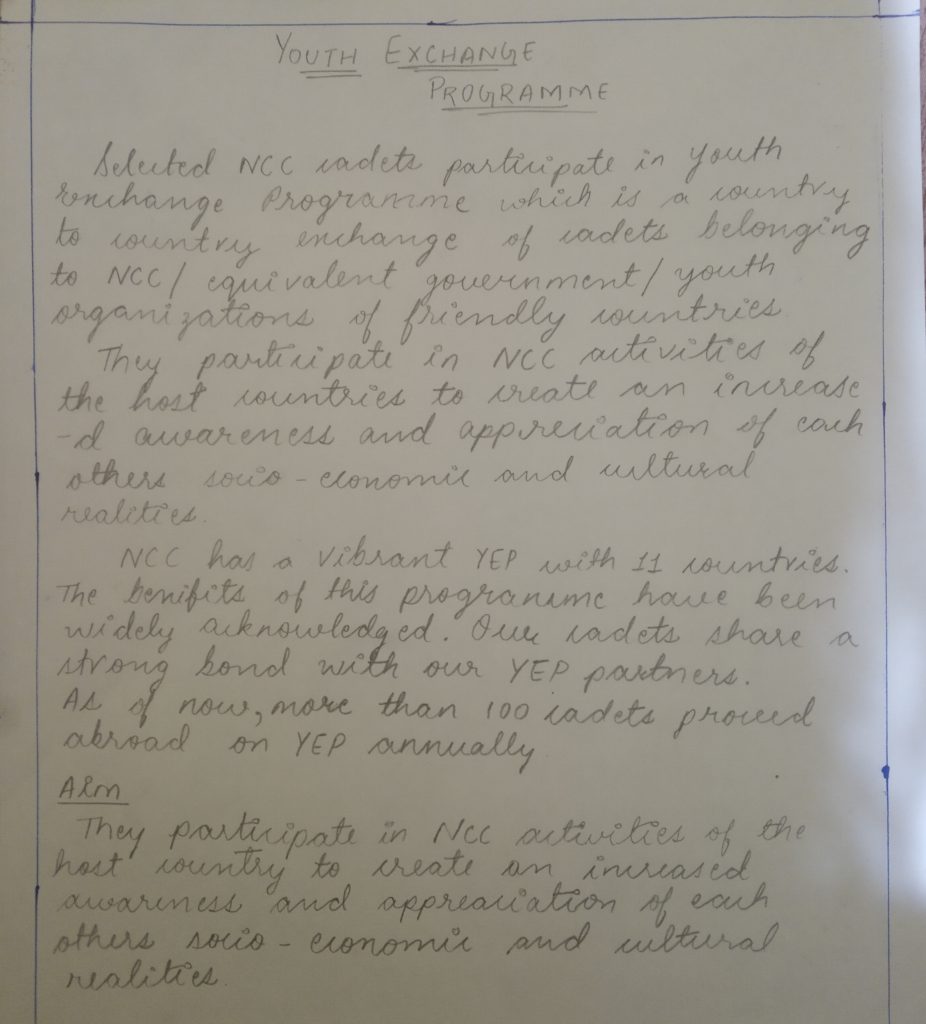 YOUTH EXCHANGE
PROGRAMME
Selected NCC cadets participate in Youth
Exchange Programme which is a country
to country exchange of cadets belonging
to NCC/ equivalent government/ youth
organizations of friendly countries.
They participate in NCC activities of
the host countries to create an increase
-d awareness and appreciation of each
others socio-economic and cultural
realities.
NCC has a vibrant YEP with 11 countries.
The benifits of this programme have been
widely acknowledged. Our cadets share a
strong bond with our YEP partners.
As of now, more than 100 cadets proceed
abroad on YEP annually
Aim
They participate in NCC activities of the
host country to create an increased
awareness and appreaciation of each
others socio-economic and cultural
realities.